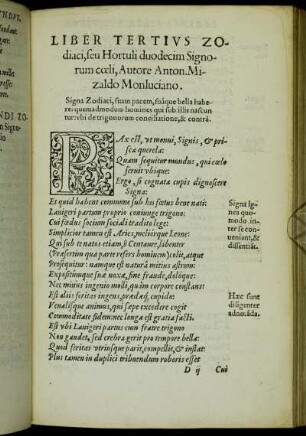 LIBER TERTIVS ZO-
diaci, seu Hortuli duodecim Signo-
rum cœli, Autore Anton. Mi-
zaldo Monluciano.
Signa Zodiaci, suam pacem, suaque bella habe-
re: quemadmodum homines qui sub illis nascun
tur: vbi de trigonorum concitatione, & contrà.
PAx est, vt monui, Signis, & pri-
sca querela:
Quam sequitur mundus, qui cœlo
struit vbique:
Ergo, si cognata cupis dignoscere
Signa:
Et quid babent commune sub his fœtus bene nati:
Lanigeri partum proprio coniunge trigono:
Cui fœdus socium sociali tradito iuli:
Simplicior tamen est Aries, meliúsque Leone:
Qui sub te natos etiam, ô Centaure, libenter
(Præsertim qua parte refers hominem) colit, atque
Prosequitur: namque est naturâ mitius astrum:
Expositúmque suæ noxæ, sine fraude, dolóque:
Nec minus ingenio molli, quàm corpore constans:
Est alijs feritas ingens, prædæq, cupido:
Venalisque animus, qui sæpe excedere cogit
Commoditate fidem: nec longa est gratia facti.
Est vbi Lanigeri partus cum fratre trigono
Non gaudet, sed crebra gerit pro tempore bella:
Quod feritas vtrinsque parit, compellit, & instat:
Plus tamen in duplici tribuendum roboris esset
D ij
Cui
Signa Ig-
nea quo-
modo in-
ter se con-
ueniant, &
dissentiāt.
Hæc sunt
diligenter
adnotāda.